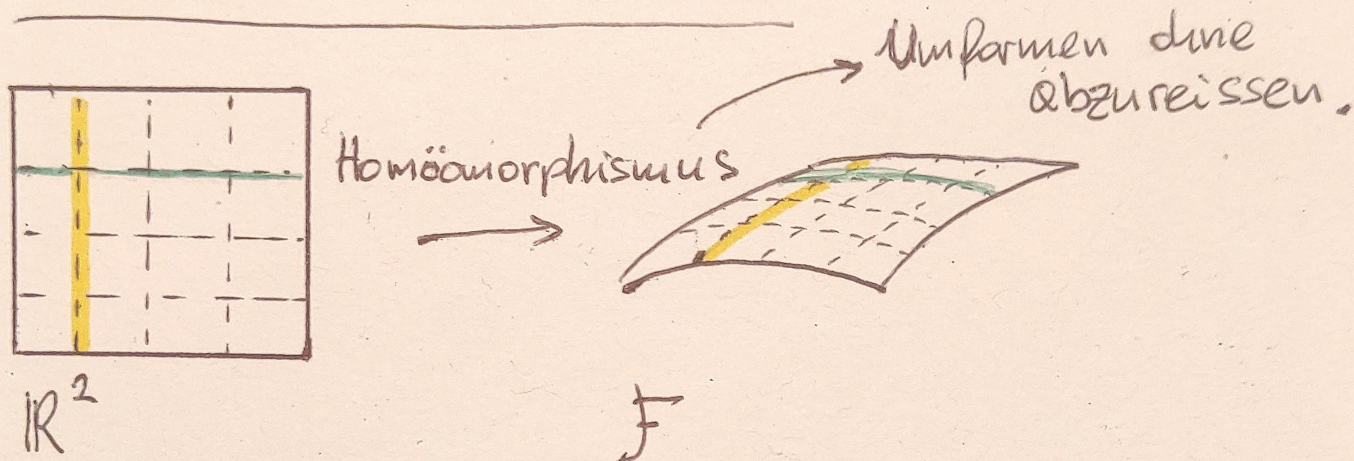 Umformen ohne
abzureissen.
Homöomorphismus
IR²
F